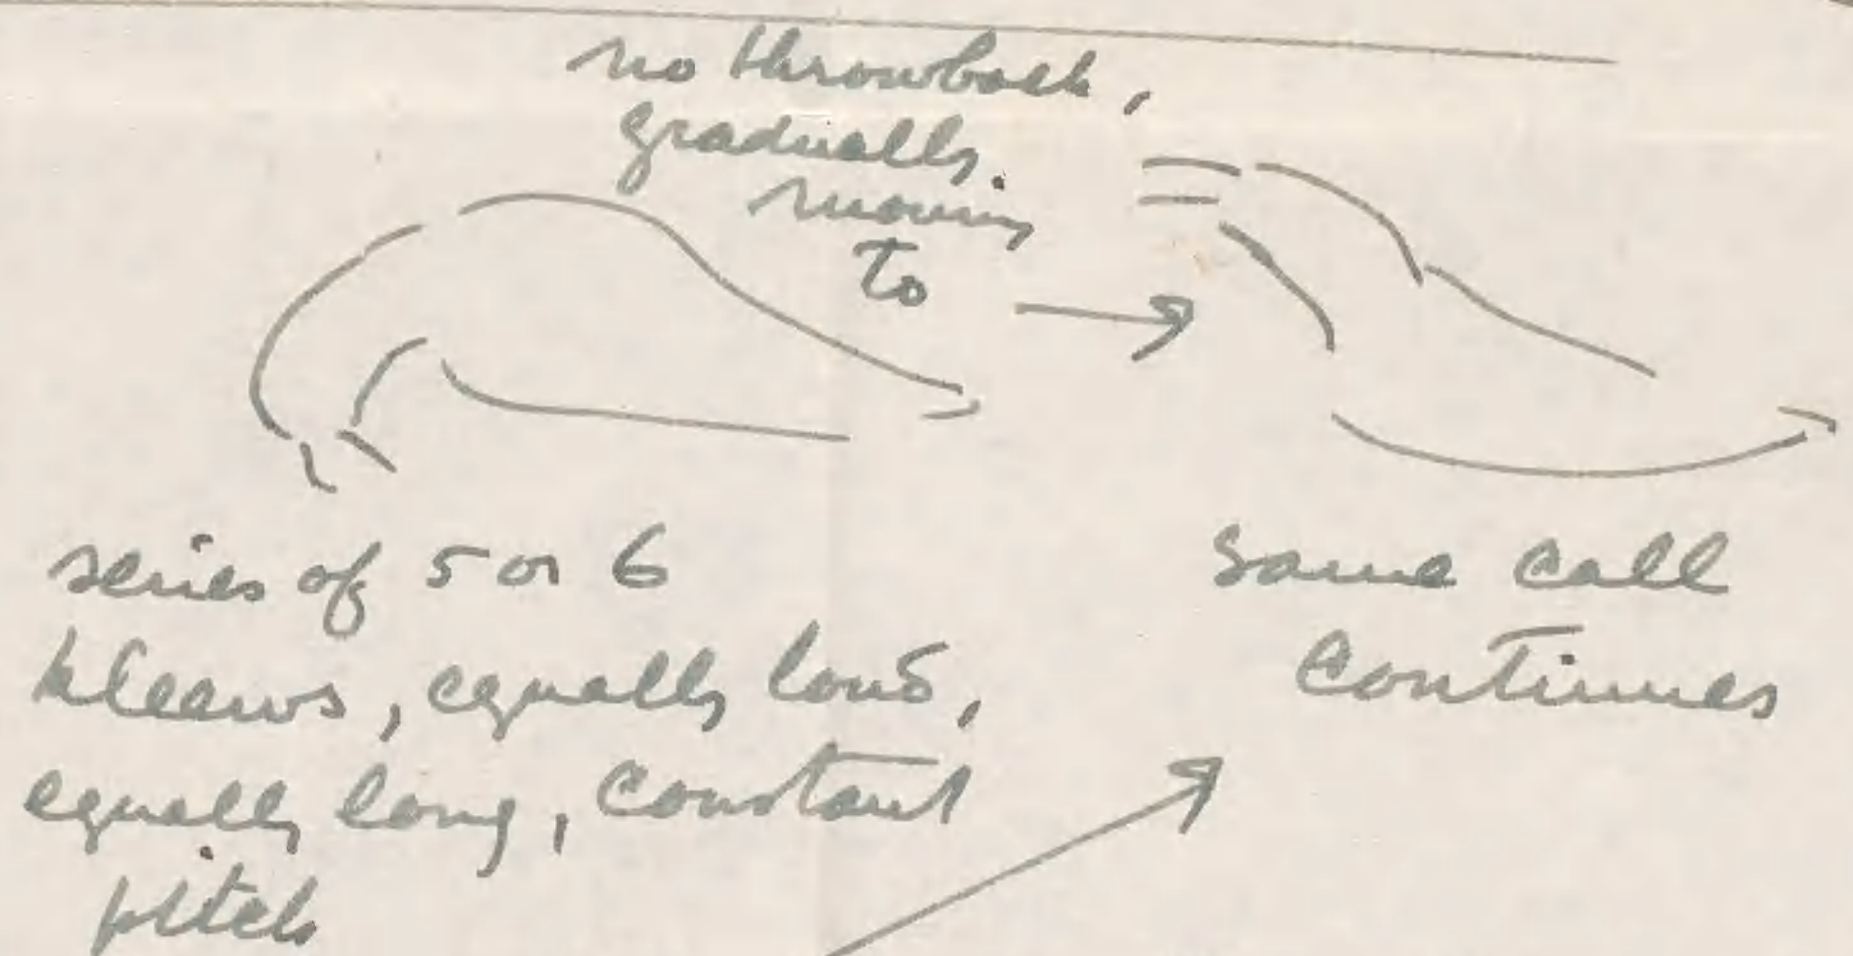 no throwback,
gradually
moving
to
series of 5 or 6
kleews, equally loud,
equally long, constant
pitch
Same call
continues